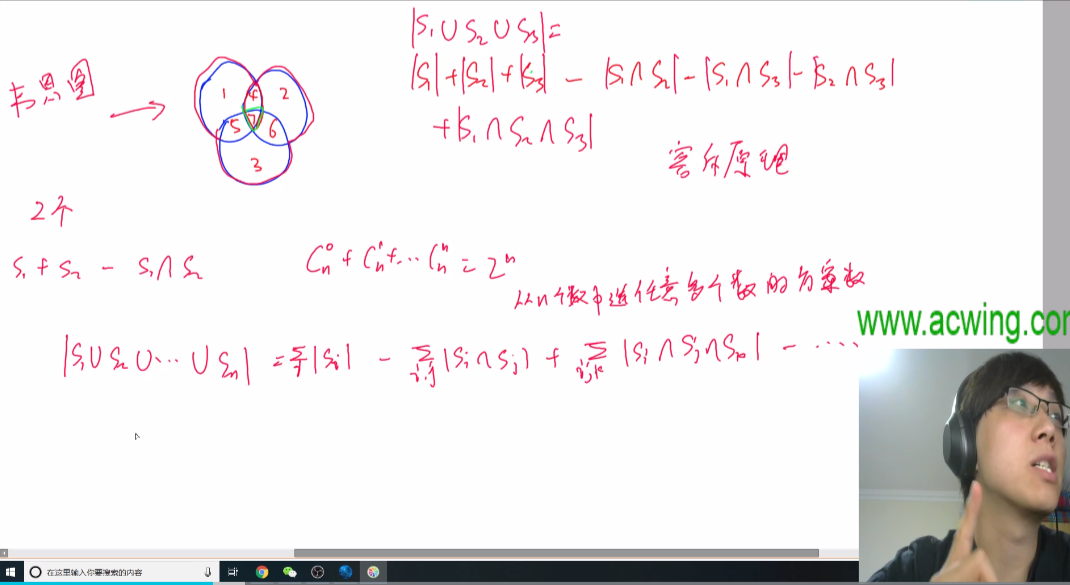 |S₁∪S₂∪S₃|=
|S₁|+|S₂|+|S₃| - |S₁∩S₂| - |S₁∩S₃| - |S₂∩S₃|
+|S₁∩S₂∩S₃|
韦恩图
1 4 2
5 7 6
3
容斥原理
2个
S₁+S₂ - S₁∩S₂
Cₙ⁰+Cₙ¹+…Cₙⁿ=2ⁿ
从n个数中选任意多个数的方案数
www.acwing.com
|S₁∪S₂∪…∪Sₙ| = Σᵢ|Sᵢ| - Σᵢ,ⱼ|Sᵢ∩Sⱼ| + Σᵢ,ⱼ,ₖ|Sᵢ∩Sⱼ∩Sₖ| - ……
在这里输入你要搜索的内容